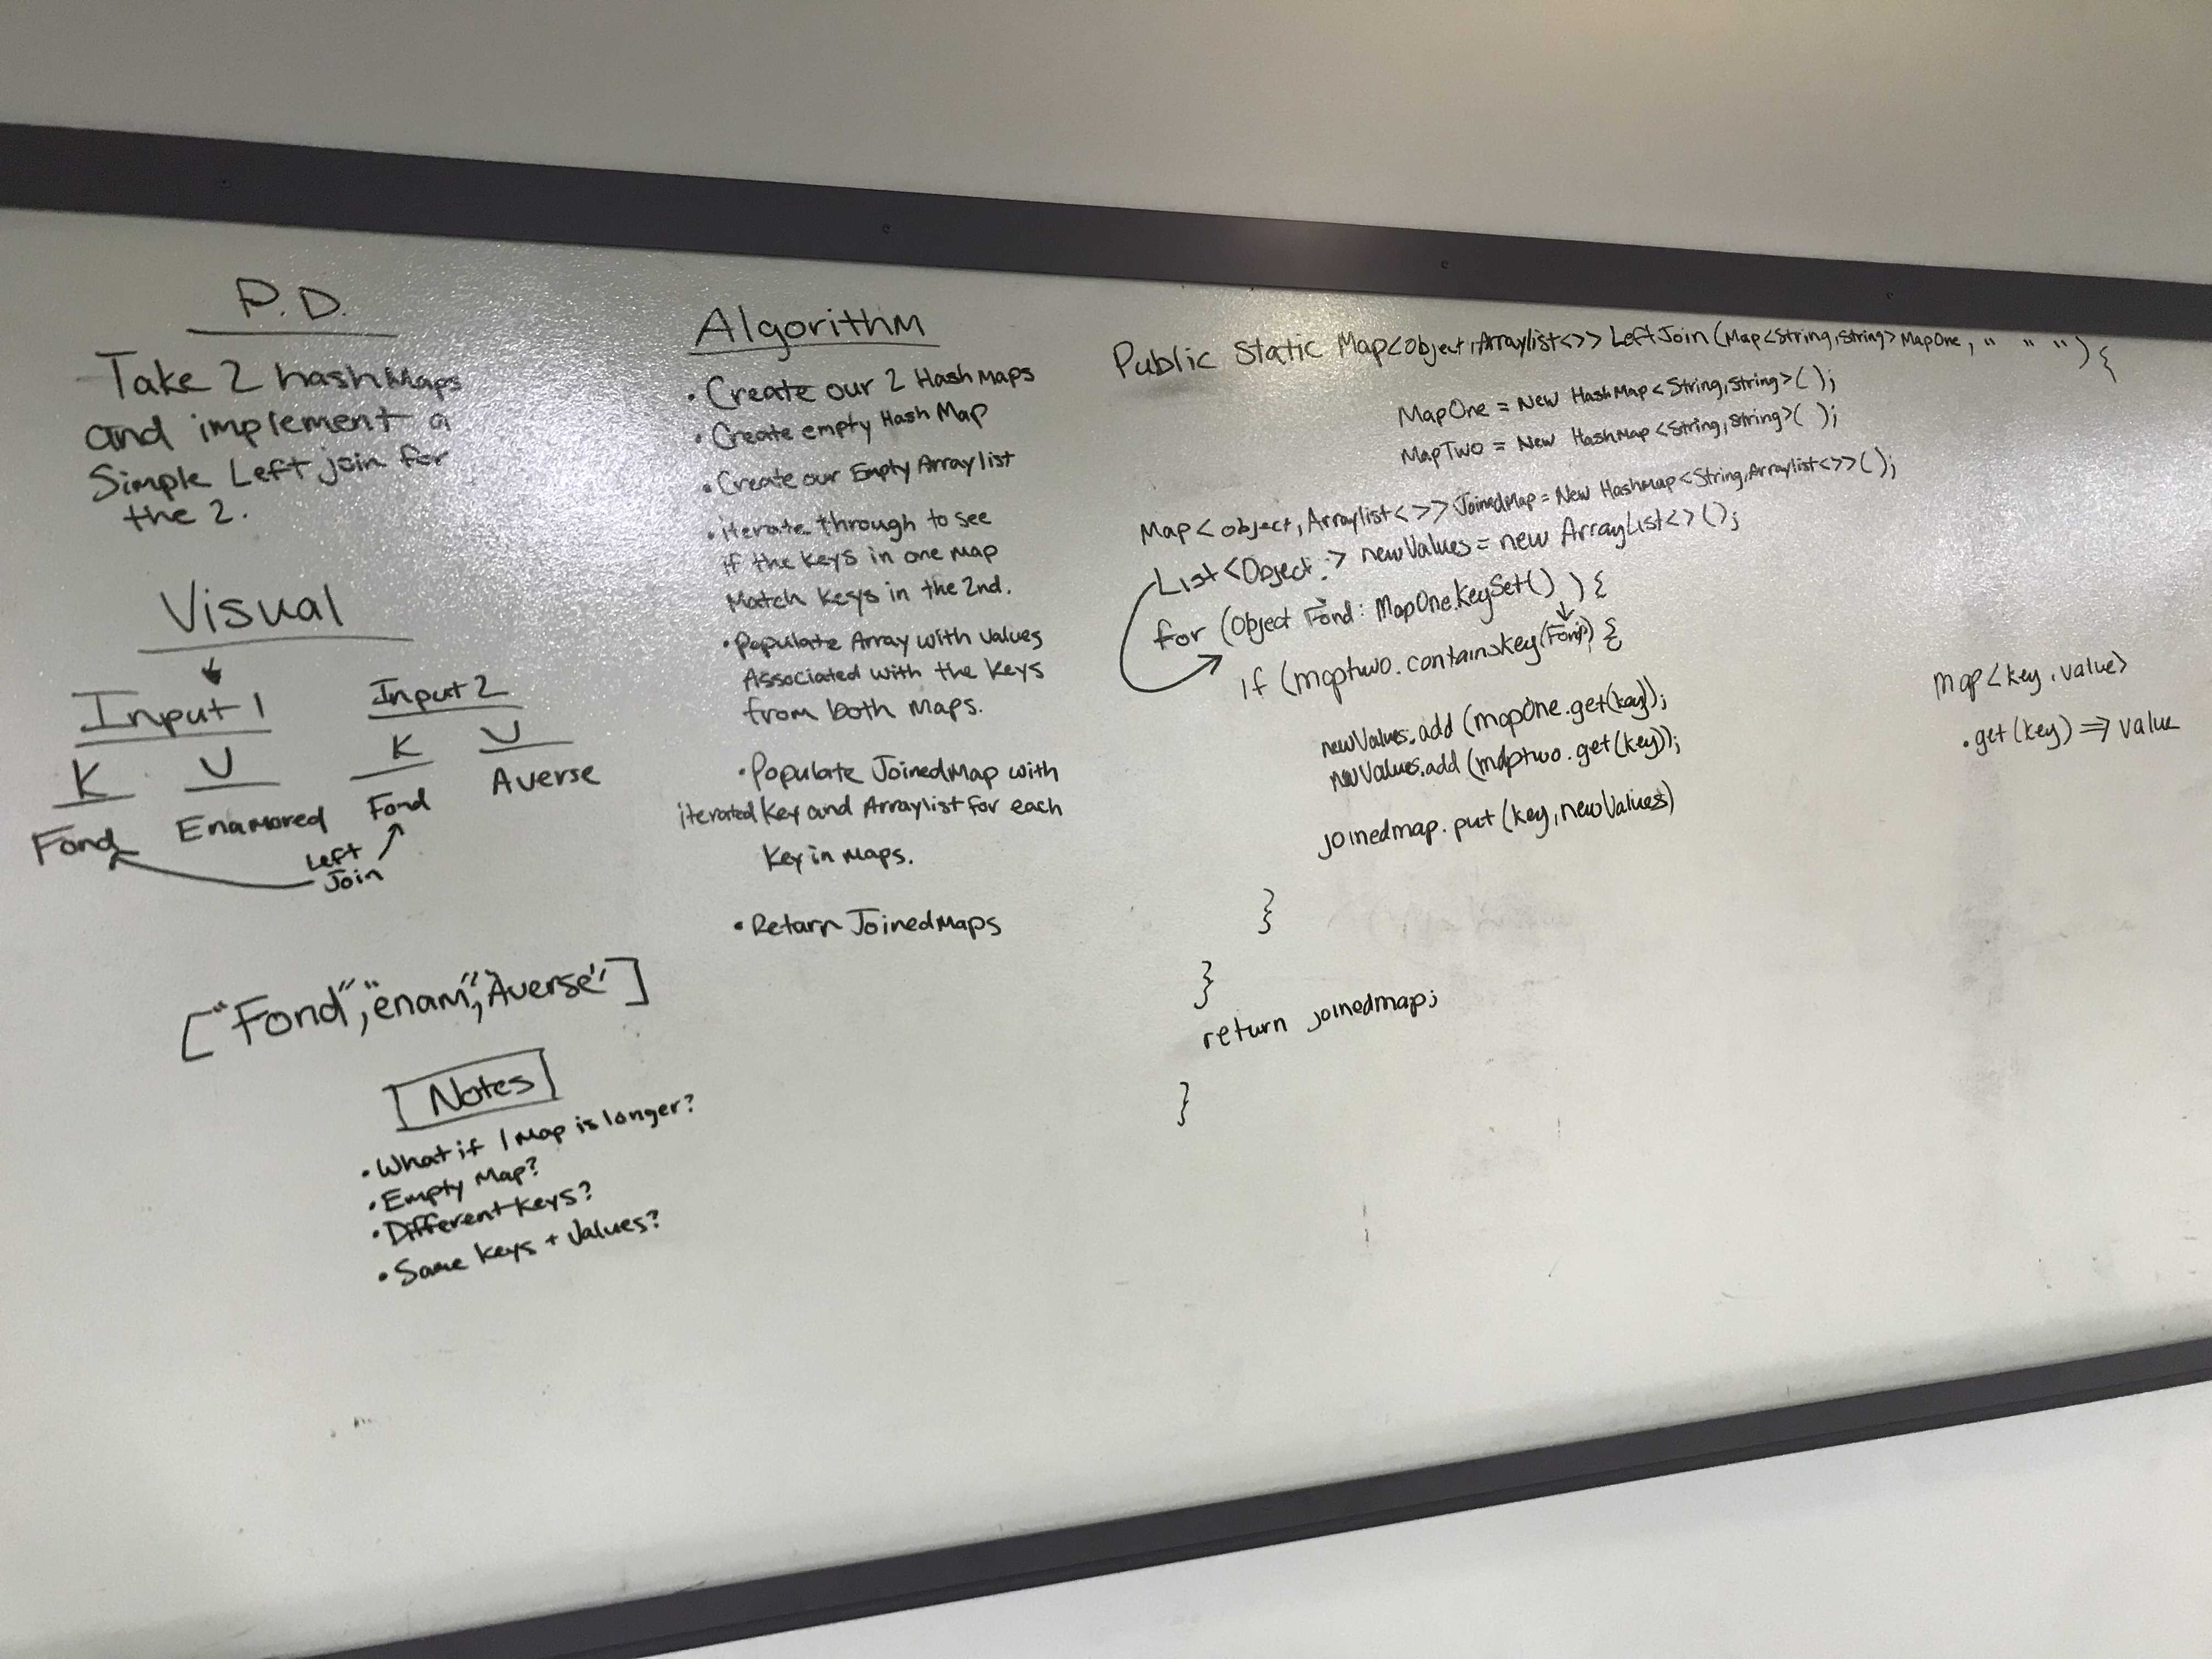 P.D.
Take 2 hashMaps
and implement a
Simple Left join for
the 2.
Visual
Input 1
K V
Fond Enamored
Input 2
K V
Fond Averse
Left
Join
["Fond", "enam", Averse"]
Notes
• What if 1 Map is longer?
• Empty Map?
• Different keys?
• Same keys + values?
Algorithm
• Create our 2 Hash Maps
• Create empty Hash Map
• Create our Empty Arraylist
• iterate through to see
if the keys in one map
Match keys in the 2nd.
• Populate Array with values
Associated with the keys
from both Maps.
• Populate JoinedMap with
iterated Key and Arraylist for each
Key in Maps.
• Return JoinedMaps
Public Static Map<object, Arraylist<>> LeftJoin (Map<String, String> MapOne, " " ") {
MapOne = New HashMap<String, String>( );
MapTwo = New HashMap<String, String>( );
Map<object, Arraylist<>> JoinedMap = New Hashmap<String, Arraylist<>>( );
List<Object> newValues = new ArrayList<>();
for (Object Fond : MapOne.KeySet() ) {
if (maptwo.containskey(Fond) {
newValues.add (mapOne.get(key));
newValues.add (maptwo.get(key));
joinedmap.put (key, newValues)
}
}
return joinedmap;
}
map<key, value>
.get(key) ⇒ value